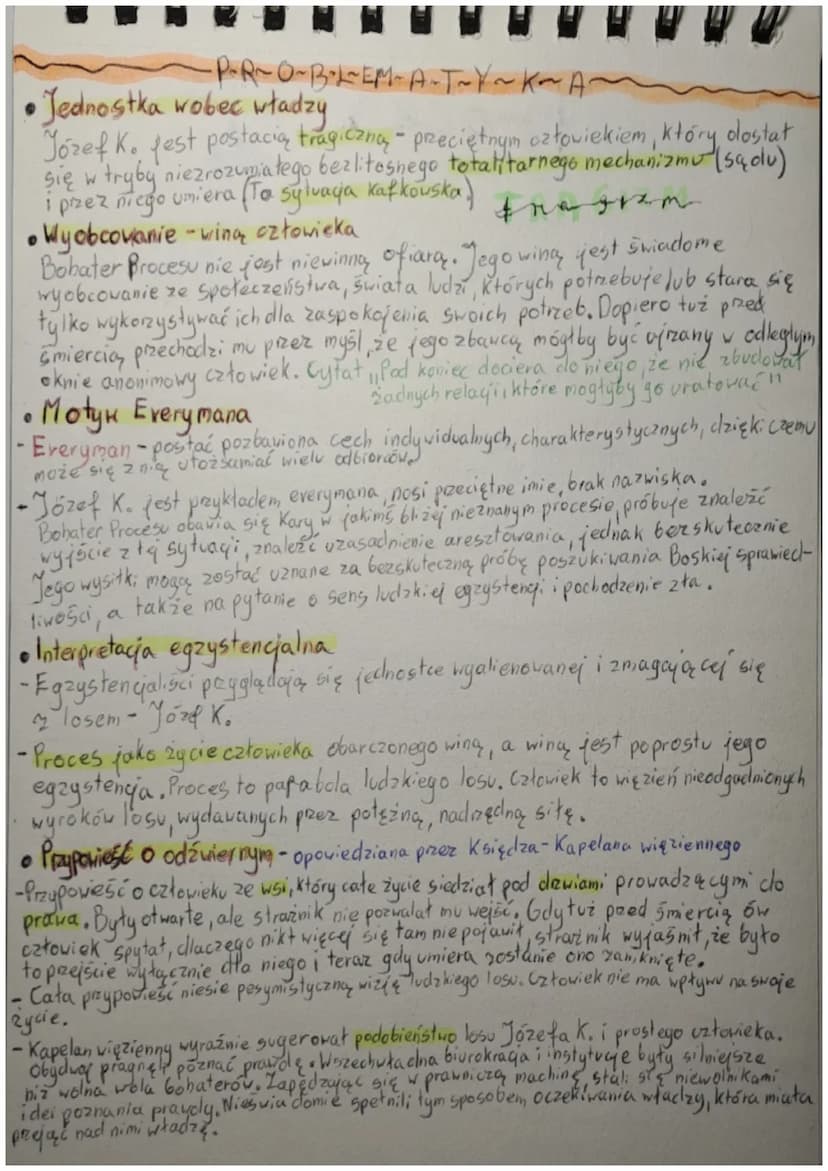 P~R~O~B~L~EM~A~T~Y~K~A
• Jednostka wobec władzy
Józef K. jest postacią tragiczną - przeciętnym człowiekiem, który dostał
się w tryby niezrozumiałego bezlitosnego totalitarnego mechanizmu (sądu)
i przez niego umiera (To sytuacja kafkowska)
• Wyobcowanie - winą człowieka
Bohater Procesu nie jest niewinną ofiarą. Jego winą jest świadome
wyobcowanie ze społeczeństwa, świata ludzi, których potrzebuje lub stara się
tylko wykorzystywać ich dla zaspokojenia swoich potrzeb. Dopiero tuż przed
śmiercią przechodzi mu przez myśl, że jego zbawcą mógłby być ujrzany w odległym
oknie anonimowy człowiek. Cytat „Pod koniec dociera do niego, że nie zbudował
żadnych relacji, które mogłyby go uratować"
• Motyw Everymana
- Everyman - postać pozbawiona cech indywidualnych, charakterystycznych, dzięki czemu
może się z nią utożsamiać wielu odbiorców.
- Józef K. jest przykładem everymana, nosi przeciętne imie, brak nazwiska.
Bohater Procesu obawia się kary w jakimś bliżej nieznanym procesie, próbuje znaleźć
wyjście z tej sytuacji, znaleźć uzasadnienie aresztowania, jednak bezskutecznie
Jego wysiłki mogą zostać uznane za bezskuteczną próbę poszukiwania Boskiej sprawied-
liwości, a także na pytanie o sens ludzkiej egzystencji i pochodzenie zła.
• Interpretacja egzystencjalna
- Egzystencjaliści przyglądają się jednostce wyalienowanej i zmagającej się
z losem - Józef K.
- Proces jako życie człowieka obarczonego winą, a winą jest poprostu jego
egzystencja. Proces to parabola ludzkiego losu. Człowiek to więzień nieodgadnionych
wyroków losu, wydawanych przez potężną, nadrzędną siłę.
• Przypowieść o odźwiernym - opowiedziana przez Księdza-Kapelana więziennego
- Przypowieść o człowieku ze wsi, który całe życie siedział pod drzwiami prowadzącymi do
prawa. Były otwarte, ale strażnik nie pozwalał mu wejść. Gdy tuż przed śmiercią ów
człowiek spytał, dlaczego nikt więcej się tam nie pojawił, strażnik wyjaśnił, że było
to przejście wyłącznie dla niego i teraz gdy umiera zostanie ono zamknięte.
- Cała przypowieść niesie pesymistyczną wizję ludzkiego losu. Człowiek nie ma wpływu na swoje
życie.
- Kapelan więzienny wyraźnie sugerował podobieństwo losu Józefa K. i prostego człowieka.
Obydwaj pragnęli poznać prawdę. Wszechwładna biurokracja i instytucje były silniejsze
niż wolna wola bohaterów. Zapędzając się w prawniczą machinę, stali się niewolnikami
idei poznania prawdy. Nieświadomie spełnili tym sposobem oczekiwania władzy, która miała
przejąć nad nimi władzę.